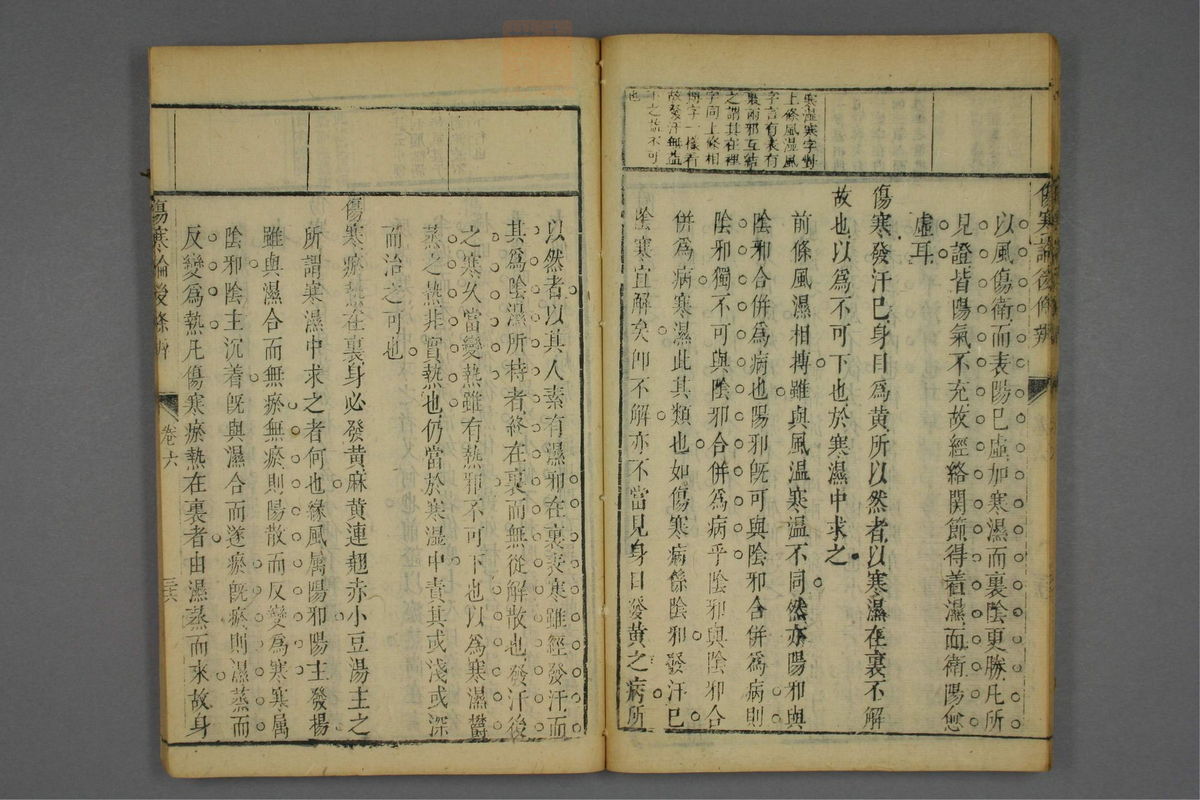 傷寒論後條辨
寒濕寒字對
上條風濕風
字言有表有
裏兩邪互結
之謂其在裡
字同上條相
搏字一樣看
故發汗無益
下之故不可
也
以風傷衛而表陽已虛加寒濕而裏陰更勝凡所
見證皆陽氣不充故經絡関節得着濕而衛陽愈
虛耳
傷寒發汗已身目為黃所以然者以寒濕在裏不解
故也以為不可下也於寒濕中求之
前條風濕相搏雖與風温寒温不同然亦陽邪與
陰邪合併為病也陽邪既可與陰邪合併為病則
陰邪獨不可與陰邪合併為病乎陰邪與陰邪合
併為病寒濕此其類也如傷寒病係陰邪發汗已
陰寒宜解矣卽不解亦不當見身目發黃之病所
以然者以其人素有濕邪在裏表寒雖經發汗而
其為陰濕所持者終在裏而無從解散也發汗後
之寒久當變熱雖有熱邪不可下也以為寒濕欝
蒸之熱非實熱也仍當於寒濕中責其或淺或深
而治之可也
傷寒瘀熱在裏身必發黃麻黃連翹赤小豆湯主之
所謂寒濕中求之者何也緣風属陽邪陽主發揚
雖與濕合而無瘀無瘀則陽散而反變為寒寒属
陰邪陰主沉着既與濕合而遂瘀既瘀則濕蒸而
反變為熱凡傷寒瘀熱在裏者由濕蒸而來故身
傷寒論後條辨
卷六
三六